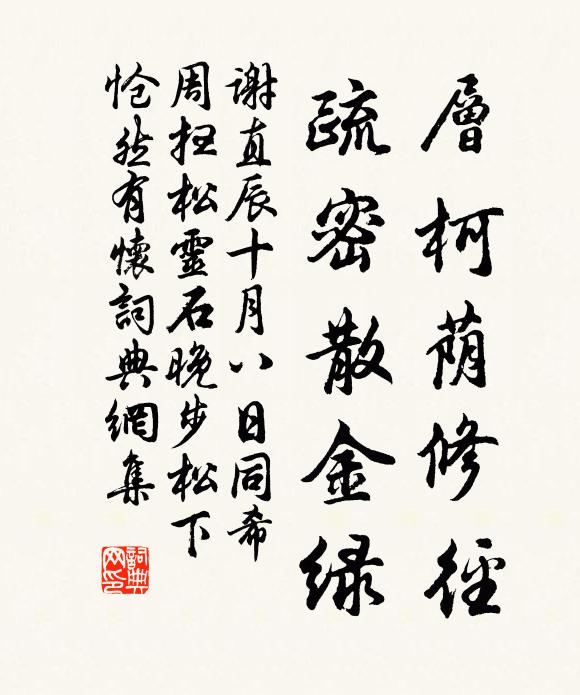 層柯荫修径
疏密散金绿
谢直辰十月八日同希
周扫松靈石晚步松下
怆然有懷詞典網集
詞典网印